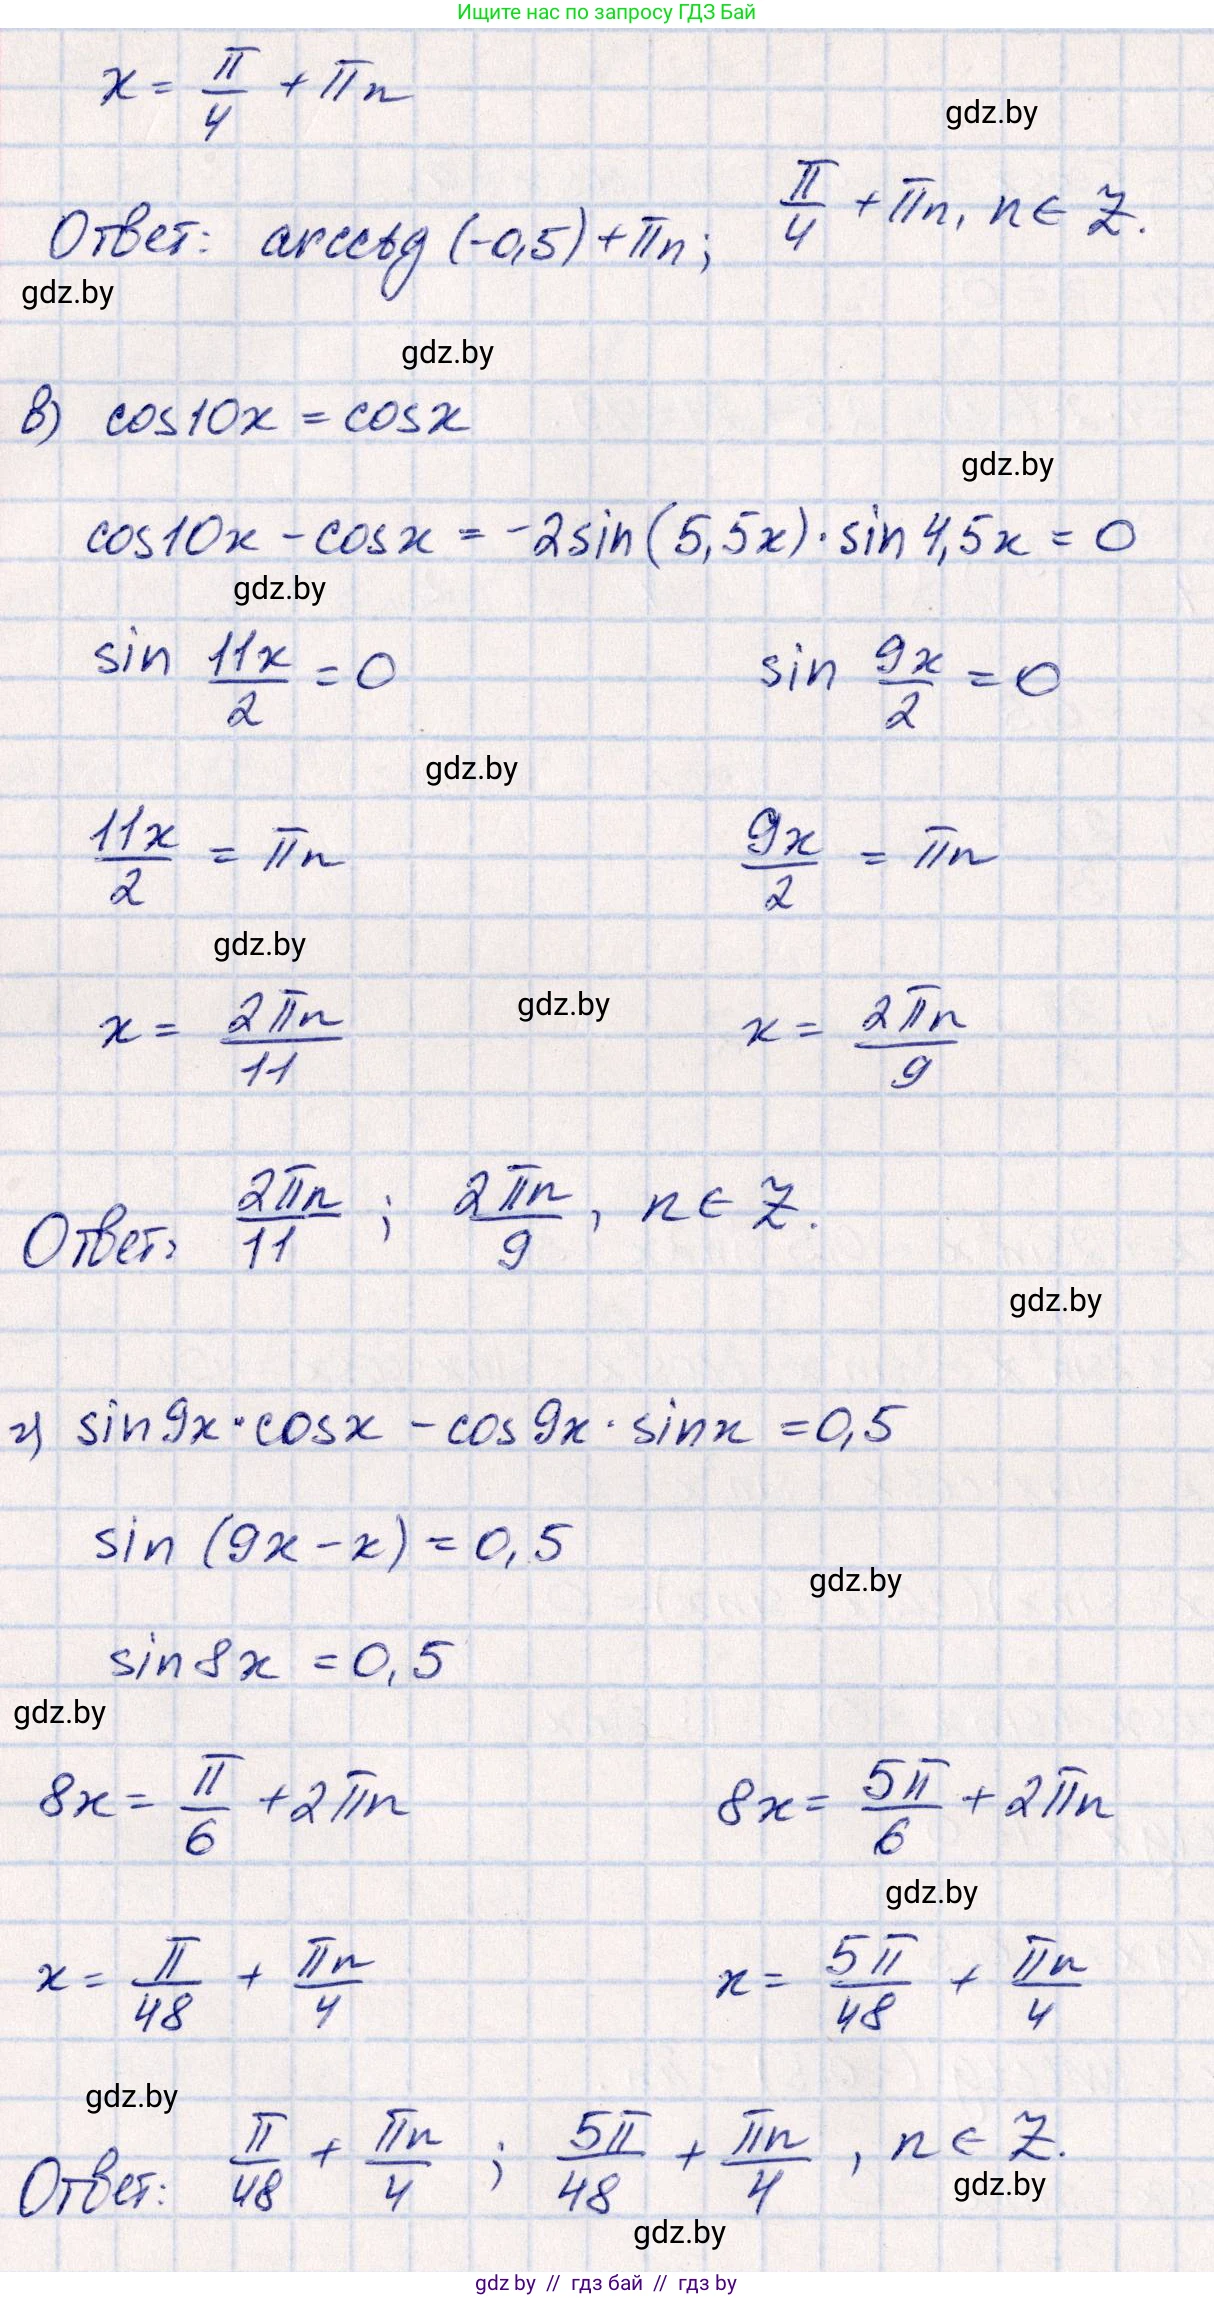 Ищите нас по запросу ГДЗ Бай
x = π/4 + πn
gdz.by
Ответ: arcctg (-0,5) + πn; π/4 + πn, n ∈ Z.
gdz.by
gdz.by
в) cos10x = cosx
gdz.by
cos10x - cosx = -2sin(5,5x) · sin4,5x = 0
gdz.by
sin 11x/2 = 0 sin 9x/2 = 0
gdz.by
11x/2 = πn 9x/2 = πn
gdz.by
gdz.by
x = 2πn/11 x = 2πn/9
Ответ: 2πn/11 ; 2πn/9 , n ∈ Z.
gdz.by
г) sin9x · cosx - cos9x · sinx = 0,5
sin (9x - x) = 0,5
gdz.by
sin8x = 0,5
gdz.by
8x = π/6 + 2πn 8x = 5π/6 + 2πn
gdz.by
x = π/48 + πn/4 x = 5π/48 + πn/4
gdz.by
Ответ: π/48 + πn/4 ; 5π/48 + πn/4 , n ∈ Z.
gdz.by
gdz.by
gdz by // гдз бай // гдз by